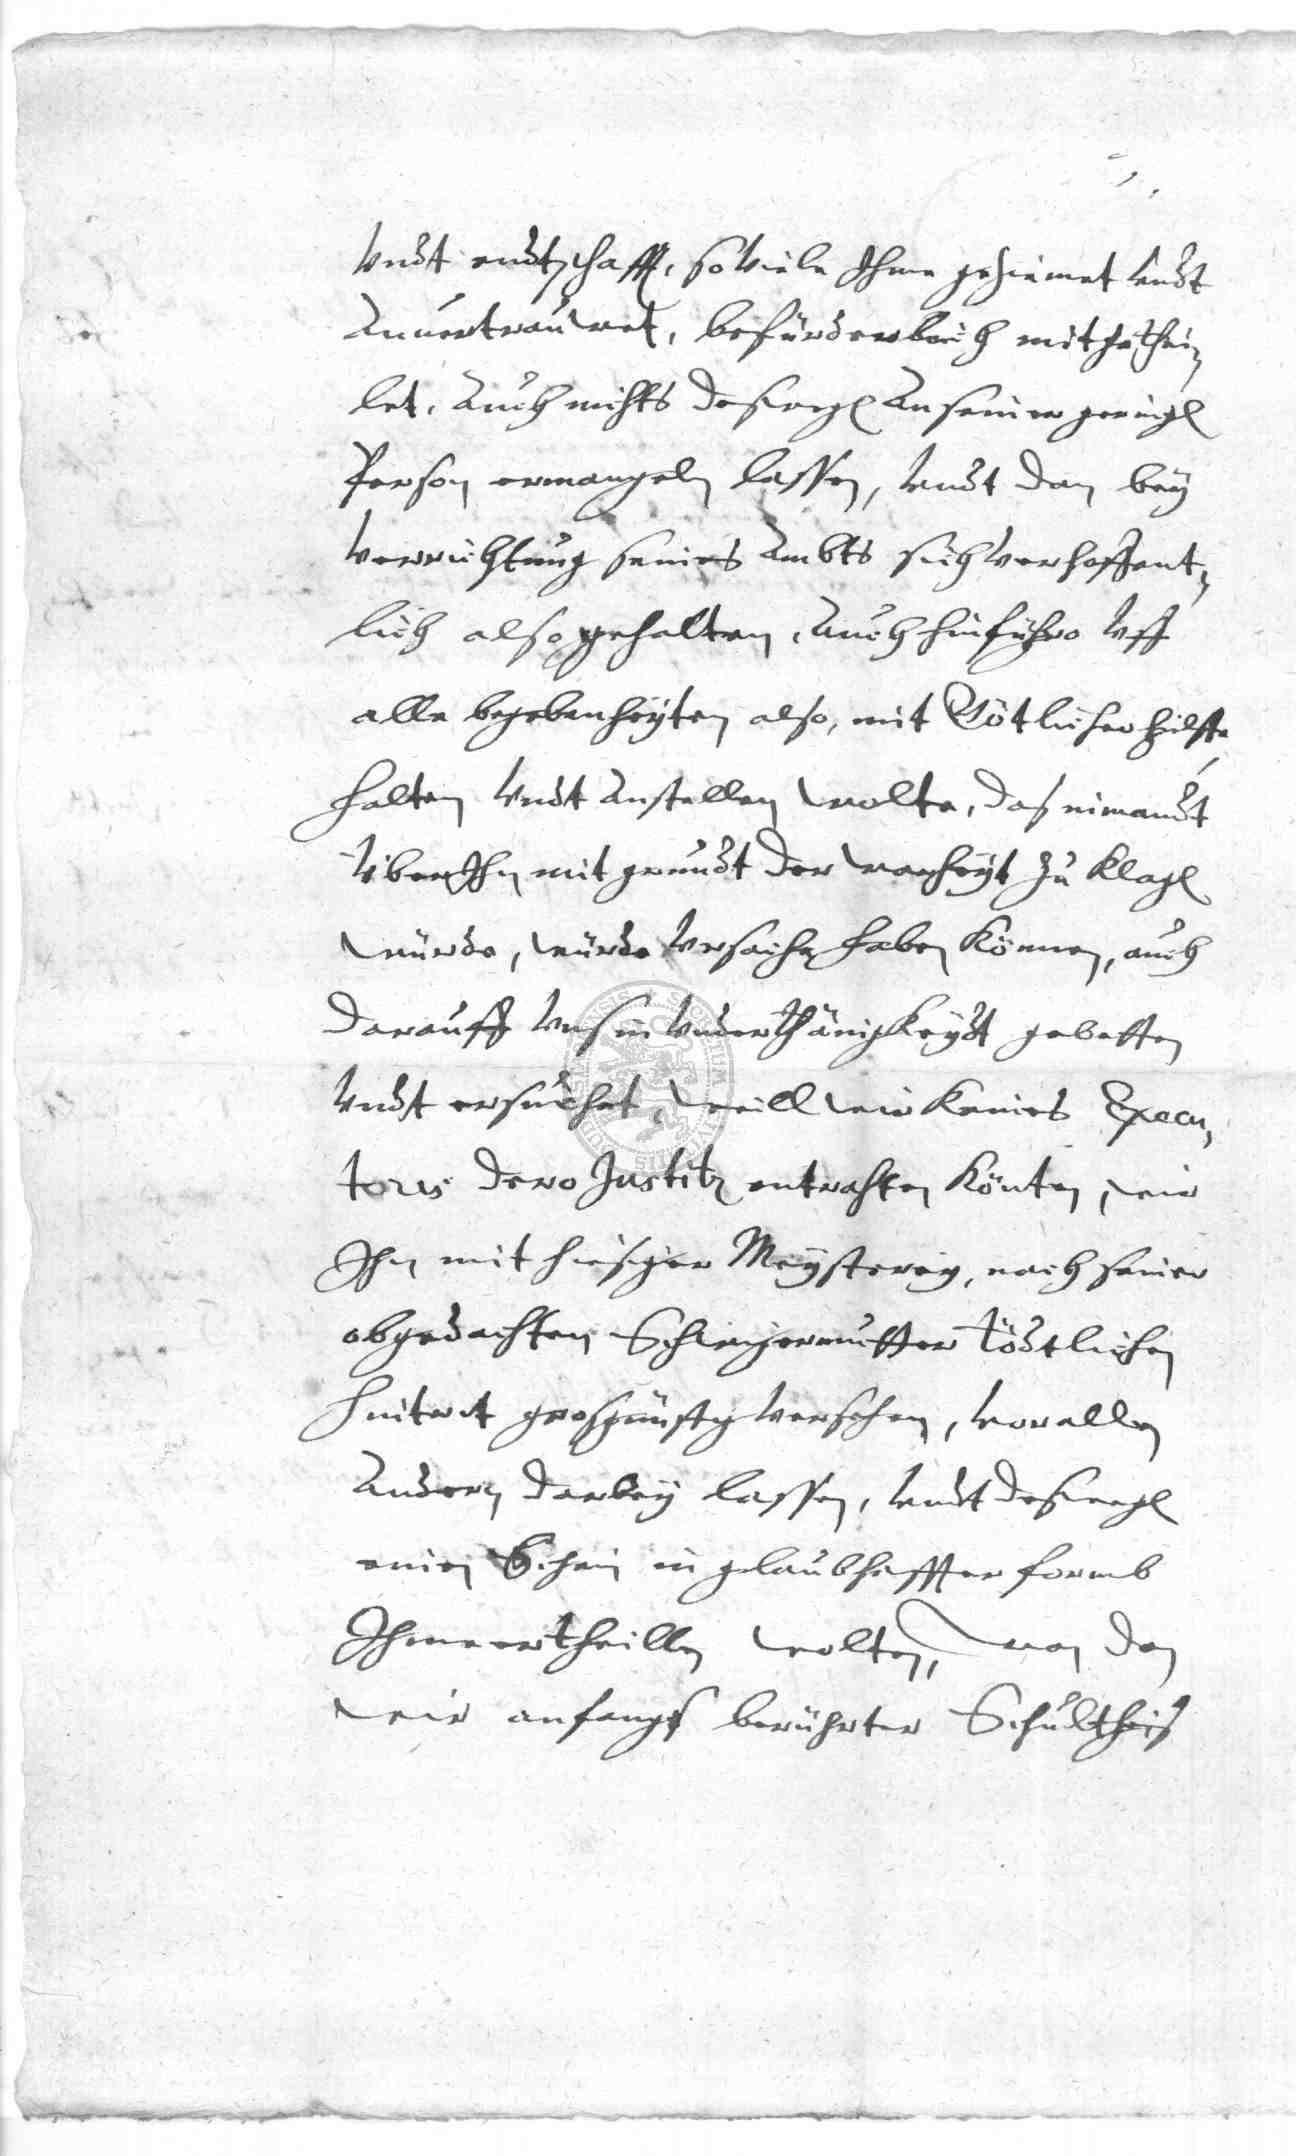 Vndt endtschafft, so Viele Ihme geziemet vndt
Anuertrauwet, befürderlich mitgethei,
let, Auch nichts deßwegen An seiner geringen
Person ermangeln lassen, vndt dan bey
Verrichtung seines Ambts sich verhoffent,
lich also gehalten, Auch hinführo Vff
alle begebenheyten also, mit Götlicher hülffe,
halten Vndt Anstellen wolte, daß niemandt
Vber Ihn mit grundt der warheyt zu klagen
würde, würde Vrsache haben können, auch
darauff Vnß in Vnderthänigkeydt gebetten
Vndt ersuchet, weill wir keines Execu,
toris dero Justitz entrathen könten, wir
Ihn mit hiesiger Meysterey, nach seiner
obgedachten Schwigermutter tödtlichen
hintrit grosgünstig versehen, vor allen
Andern darbey lassen, vndt deßwegen
einen Schein in glaubhaffter formb
Ihme ertheillen wolten, wan dan
wir anfangs berührter Schultheis